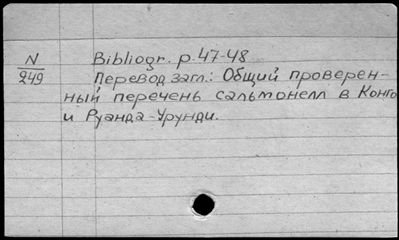 N
249
Bibliogr. p. 47-48
Перевод загл.: Общий проверен-
ный перечень сальмонелл в Конго
и Руанда-Урунди.